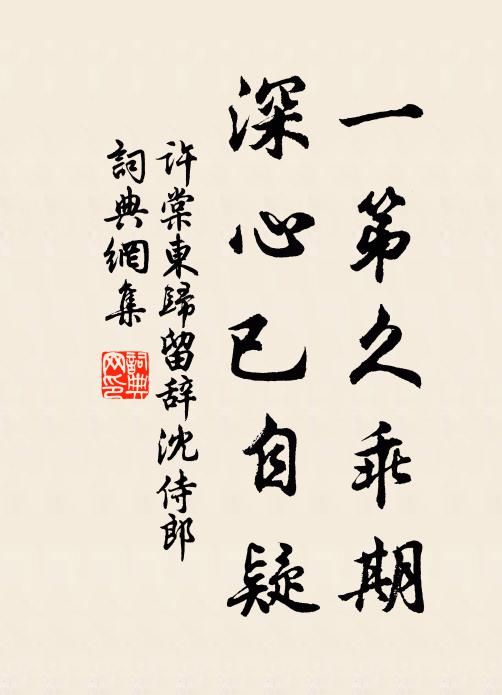 一第久乖期
深心已自疑
許棠東歸留辞沈侍郎
詞典網集
詞典網印